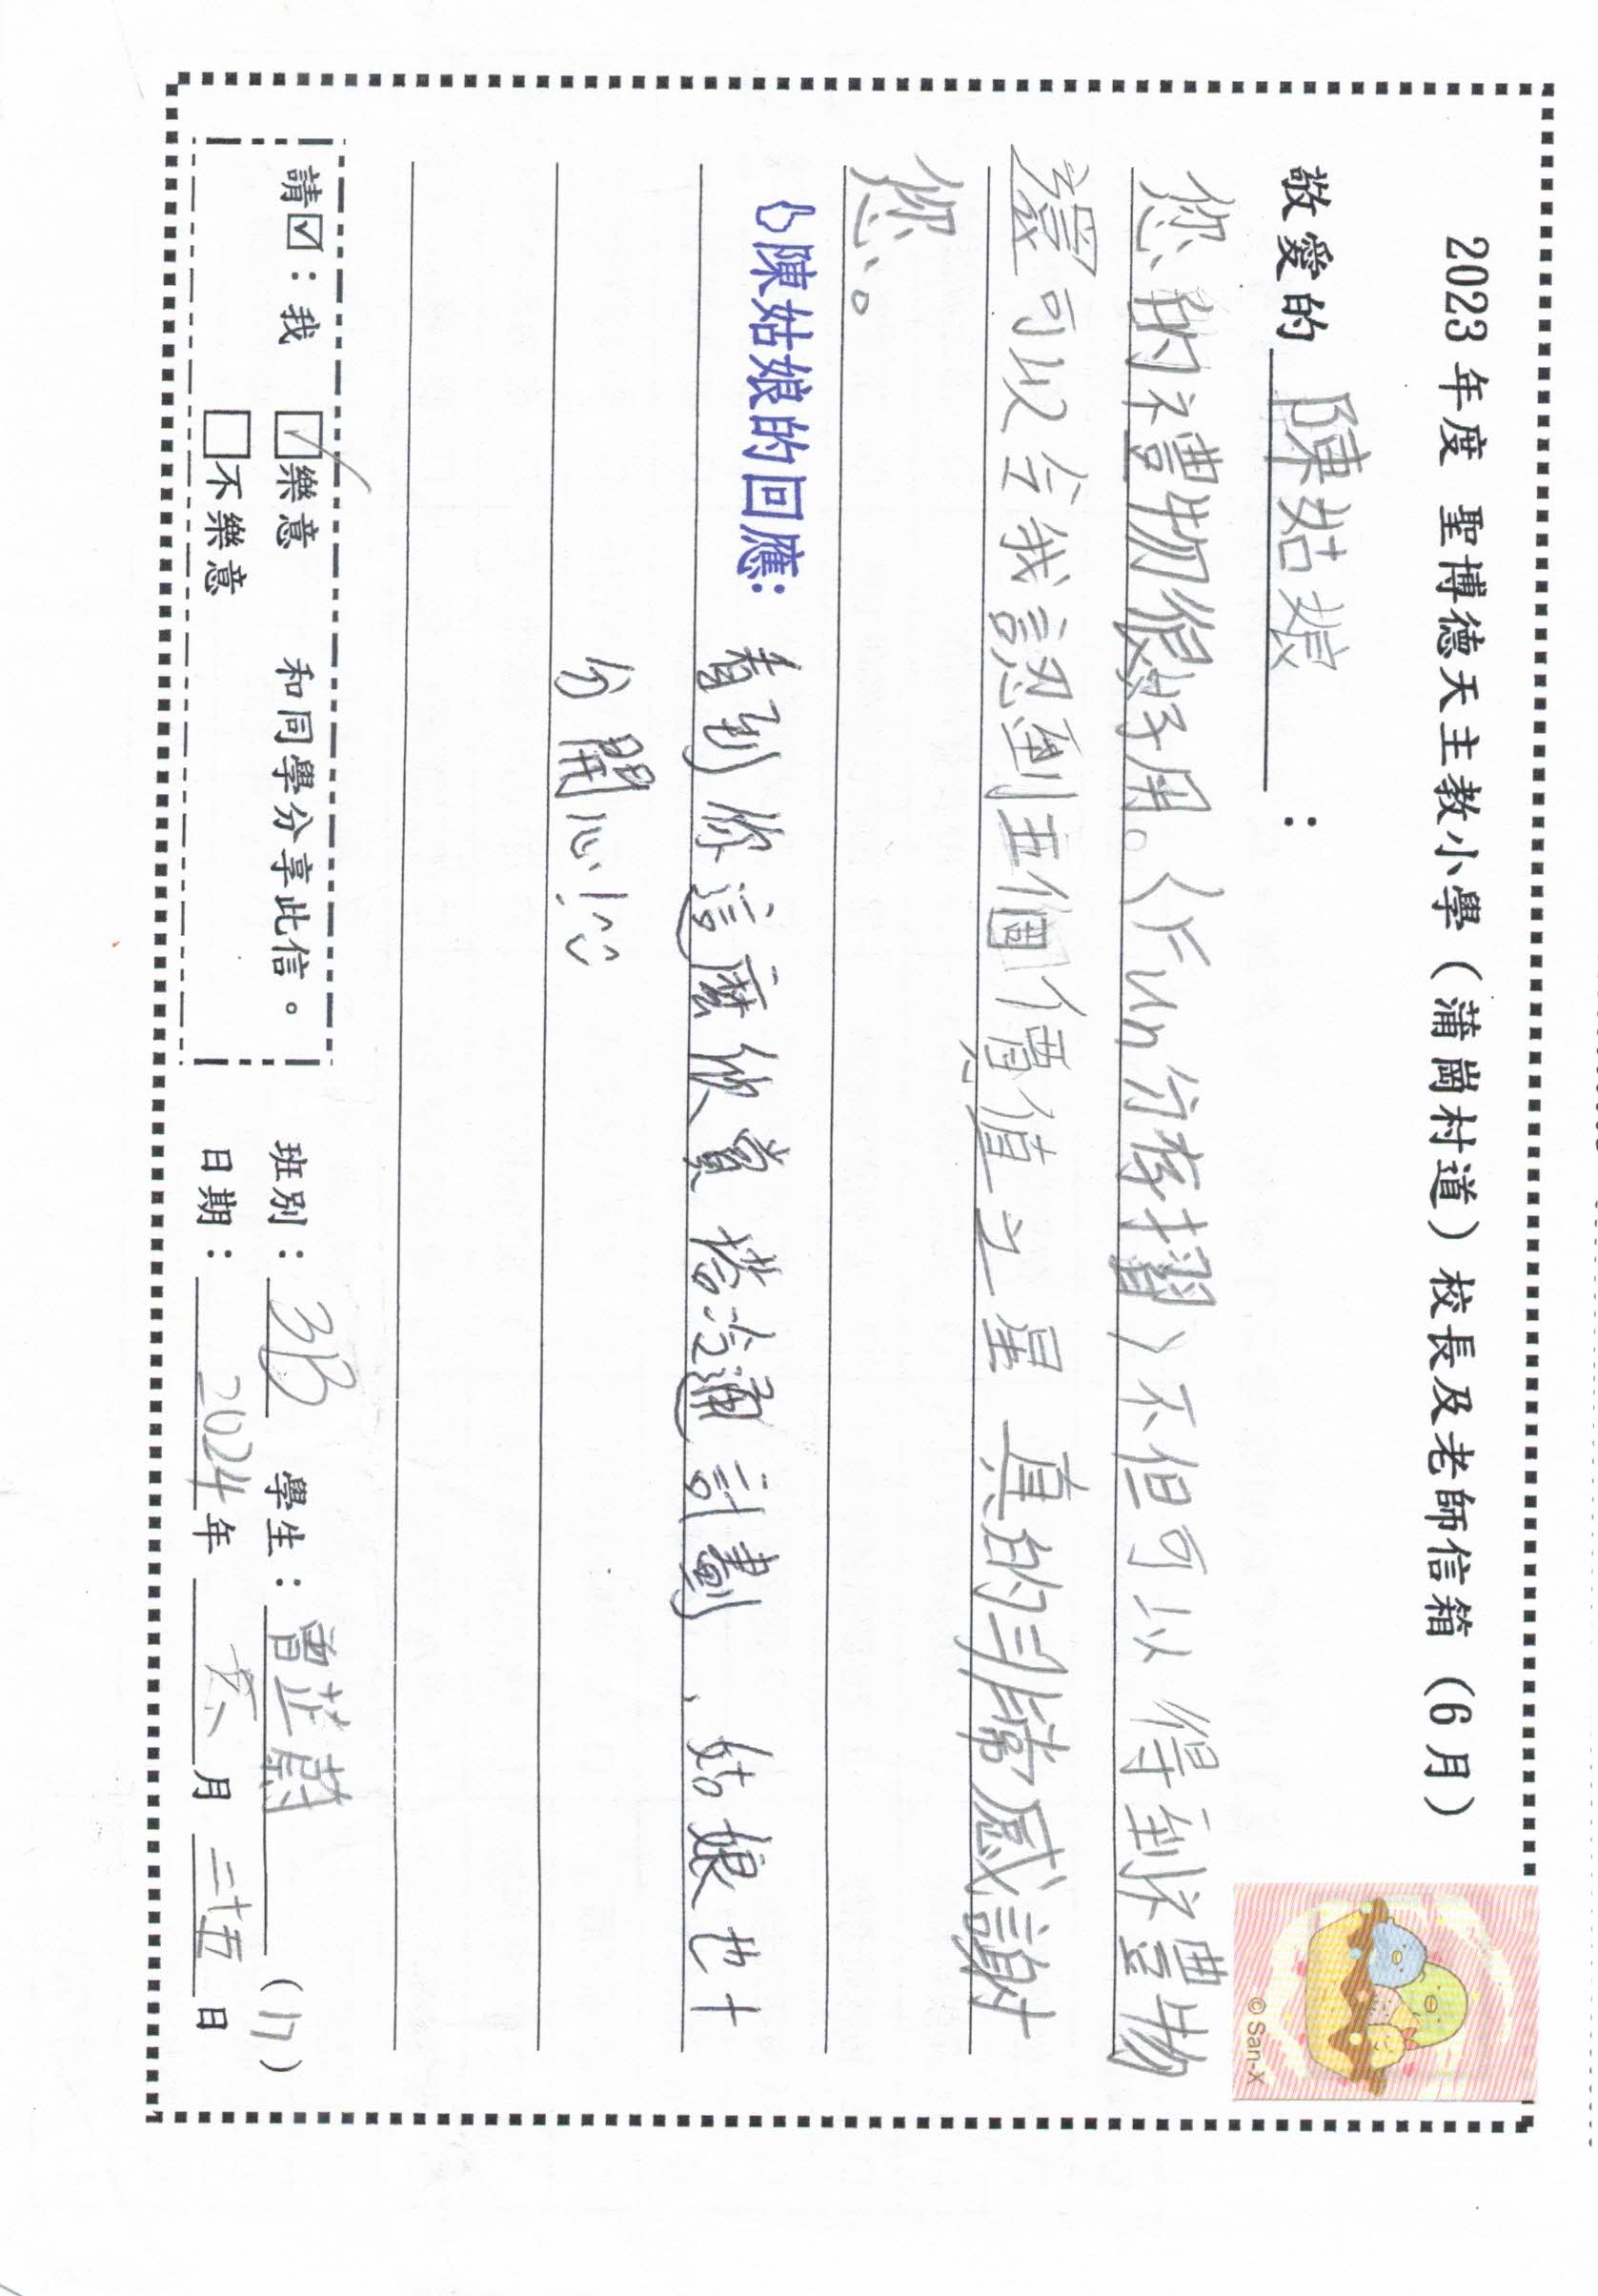 2023 年度 聖博德天主教小學（蒲崗村道）校長及老師信箱（6 月）
敬愛的 陳姑娘 ：
您的禮物很好用。〈Fun分存摺〉不但可以得到禮物
還可以令我認到五個價值之星 真的非常感謝
您。
陳姑娘的回應：
看到你這麼欣賞 塔冷通計劃、姑娘也十
分開心！
請☑：我 ☑樂意 和同學分享此信。
□不樂意
班別：3B 學生：曾芷蔚 (17)
日期：2024年 六 月 二十五 日
© San-X